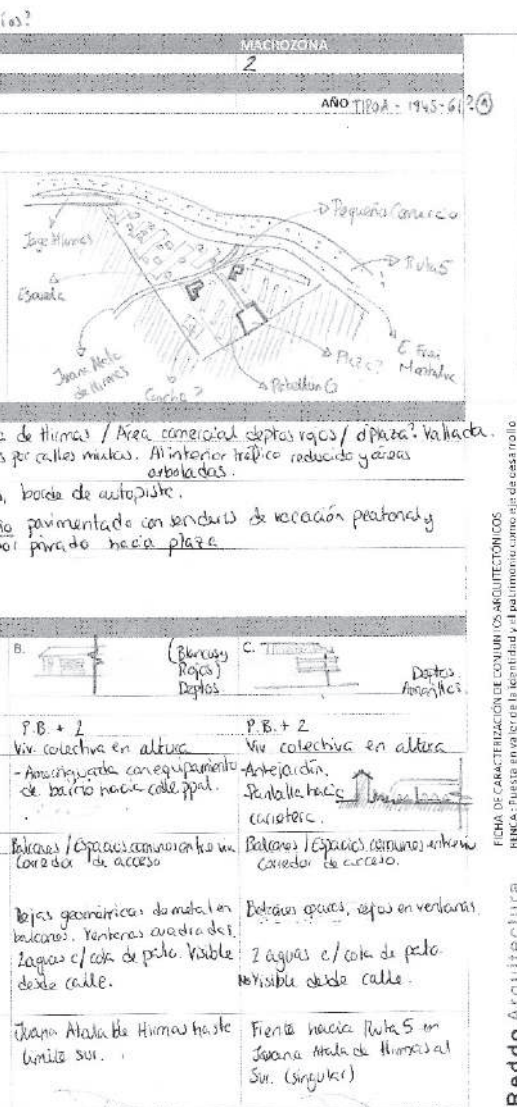 MACROZONA
2
AÑO TIPO A - 1945-61? ①
Pequeño Comercio
Ruta 5
Jorge Hirmas
Escuela
Juana Atala de Hirmas
Cancha?
Pabellón G
Plaza?
E. Frei Montalva
de Hirmas / Área comercial deptos rojos / Plaza? Vallada.
por calles mixtas. Al interior tráfico reducido y áreas
arboladas.
borde de autopista.
pavimentado con senderos de vocación peatonal y
privado hacia plaza
B.
(Blancos y
Rojos)
Deptos
C.
Deptos.
Amarillos.
P.B. + 2
P.B. + 2
Viv. colectiva en altura
Viv colectiva en altura
- con equipamiento
- Antejardín.
de barrio hacia calle ppal.
Pantalla hacia
carretera.
Balcones / Espacios comunes entre viv
Balcones / Espacios comunes entre viv
Corredor de acceso
Corredor de acceso.
Rejas geométricas de metal en
balcones. Ventanas cuadradas.
2 aguas c/ cola de pato. Visible
desde calle.
Balcones opacos, rejas en ventanas.
2 aguas c/ cola de pato.
No visible desde calle.
Juana Atala de Hirmas hasta
límite sur.
Frente hacia Ruta 5 en
Juana Atala de Hirmas al
Sur. (singular)
FICHA DE CARACTERIZACIÓN DE CONJUNTOS ARQUITECTÓNICOS
RENCA: Puesta en valor de la identidad y el patrimonio como eje de desarrollo
Reddo Arquitectura